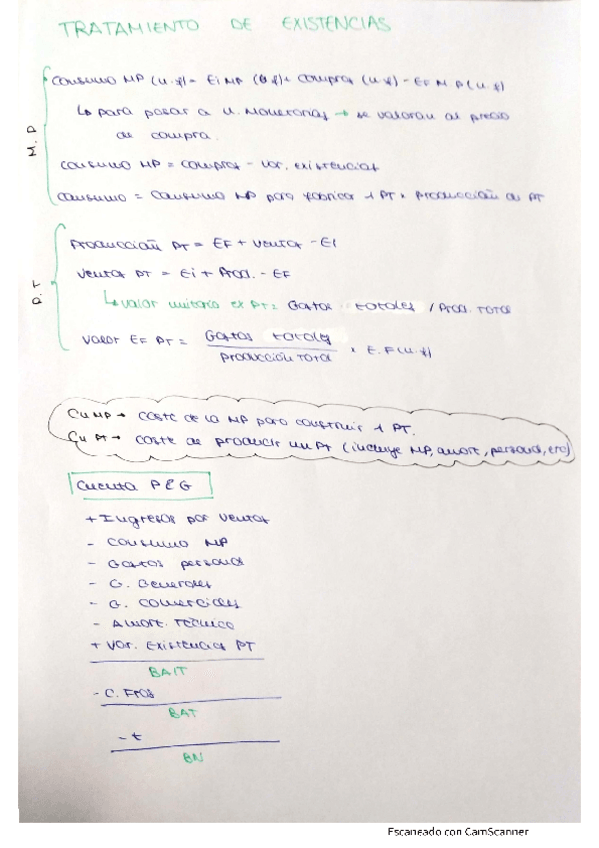 TRATAMIENTO DE EXISTENCIAS
M.P
Consumo MP (u.f) = Ei MP (u.f) + compras (u.f) - EF MP (u.f)
↳ para pasar a u. Monetarias → se valoran al precio
de compra.
Consumo MP = compras - var. existencias
Consumo = Consumo MP para fabricar 1 PT × producción de PT
P.T
Producción PT = EF + ventas - Ei
Ventas PT = Ei + Prod. - EF
↳ valor unitario ex PT = Gastos totales / Prod. total
Valor EF PT = Gastos totales / producción total × E.F (u.f)
Cu MP → coste de la MP para construir 1 PT.
Cu PT → coste de producir un PT (incluye MP, amort, personal, etc)
Cuenta P & G
+ Ingresos por ventas
- Consumo MP
- Gastos personal
- G. Generales
- G. Comerciales
- Amort. Técnico
+ Var. Existencias PT
BAIT
- G. Fros
BAT
- t
BN
Escaneado con CamScanner